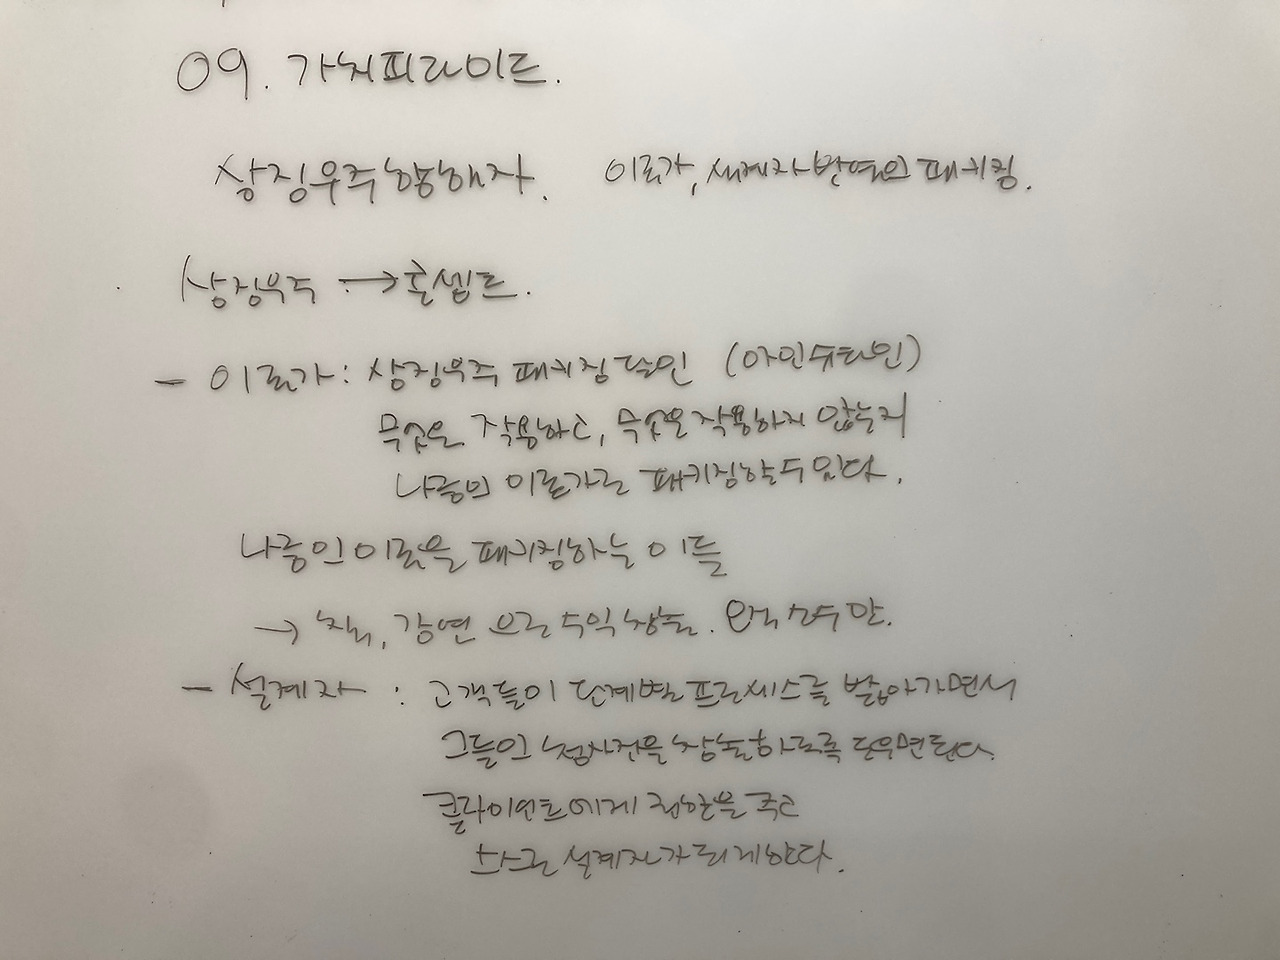 09. 가치피라미드.
상징우주항해자. 이론가, 설계자 반열의 패키징.
상징우주 → 콘셉트.
- 이론가: 상징우주 패키징 달인 (아인슈타인)
무엇은 작용하고, 무엇은 작용하지 않는지
나름의 이론가로 패키징할 수 있다.
나름의 이론을 패키징하는 이들
→ 강연 으로 수익 창출.
- 설계자 : 고객들이 단계별 프로세스를 밟아가면서
그들의 청사진을 창출하도록 도우면된다.
클라이언트에게 권한을 주고
스스로 설계자가 되게한다.